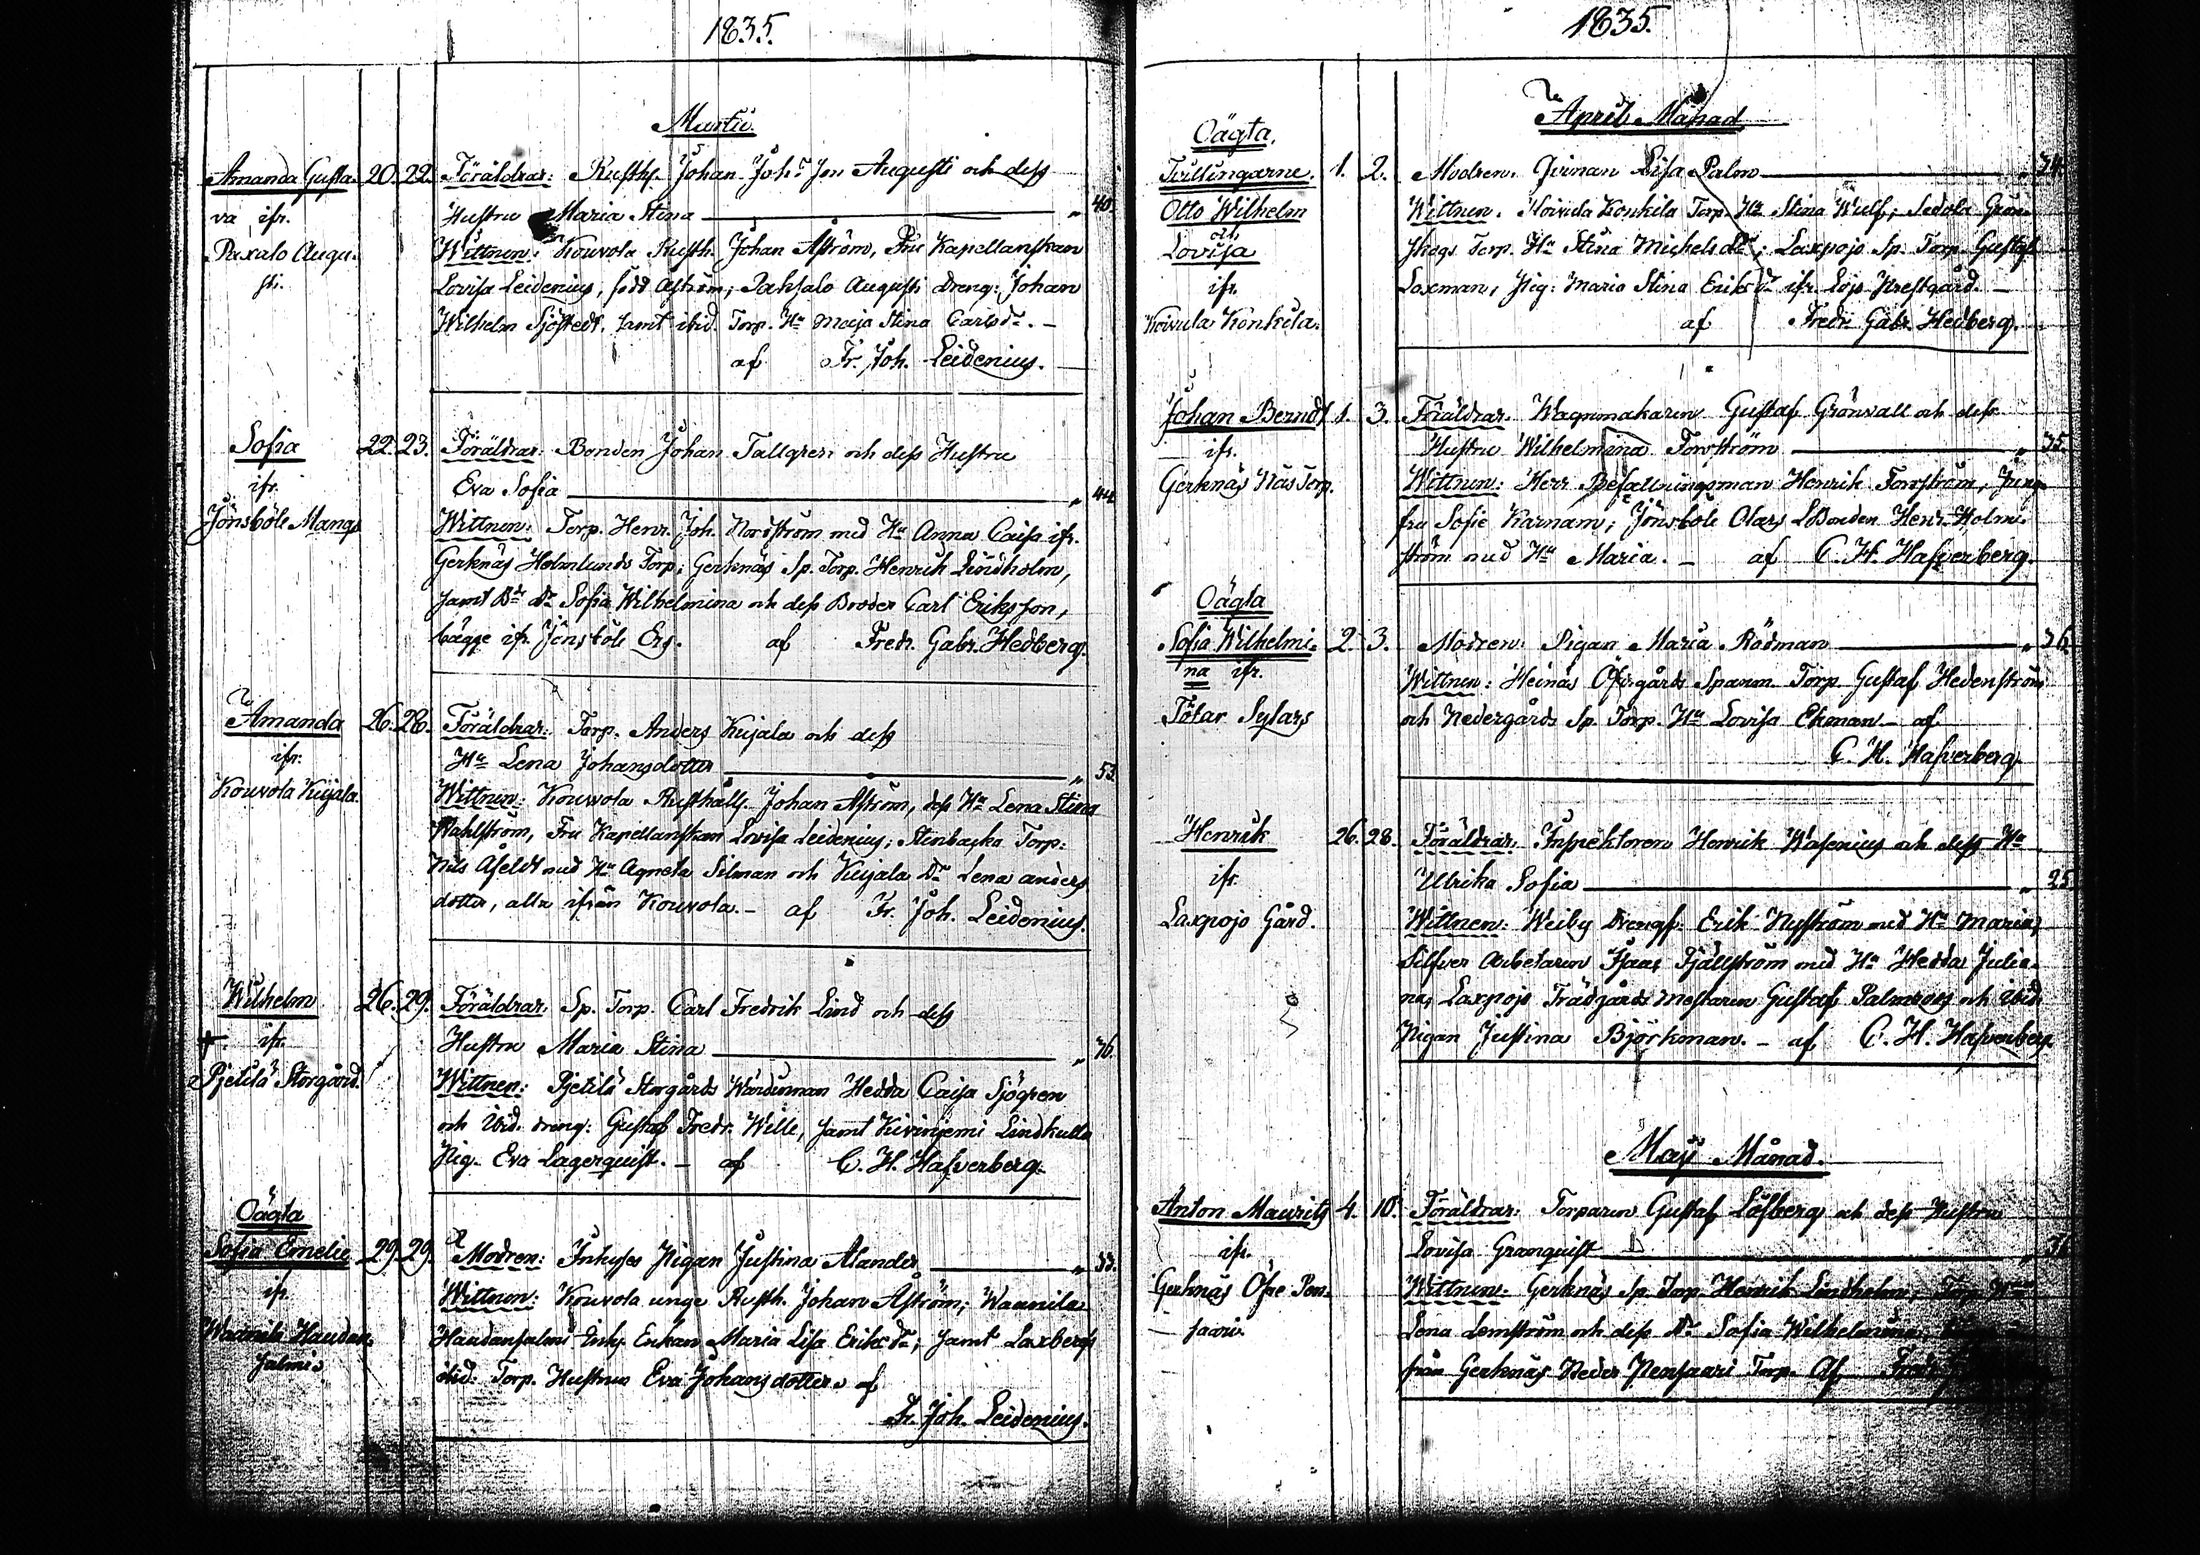 1835.
Martii
Amanda Gusta- 20. 22. Föräldrar: Rusth. Johan Joh:s Son Augusti och dess
va ifr. Hustru Maria Stina 40.
Paxalo Augu- Wittnen: Kouvola Rusth. Johan Åström, Fru Kapellanskan
sti. Lovisa Leidenius, född Åström, Pahsalo Augusti dreng: Johan
Wilhelm Sjöstedt, samt ibid. Torp. Hu Maja Stina Carlsdr. –
af Fr. Joh. Leidenius.
Sofia 22. 23. Föräldrar: Bonden Johan Tallgren och dess Hustru
ifr. Eva Sofia 44.
Jönsböle Mangs Wittnen: Torp. Henr. Joh. Nordström med Hu Anna Caisa ifr.
Gerknäs Holmlunds Torp; Gerknäs Sp. Torp. Henrik Lindholm,
samt Bd. Dr. Sofia Wilhelmina och dess Broder Carl Eriksson,
bägge ifr. Jönsböle Ers. af Fredr. Gabr. Hedberg.
Amanda 26. 28. Föräldrar: Torp. Anders Kujala och dess
ifr. Hu Lena Johansdotter 53.
Kouvola Kujala. Wittnen: Kouvola Rusthålls. Johan Åström, dess Hu Lena Stina
Wahlström, Fru Kapellanskan Lovisa Leidenius; Stenbacka Torp:
Nils Åfeldt med Hu Agneta Silman och Kujala Dr. Lena anders
dotter, alla ifrån Kouvola. – af Fr. Joh. Leidenius.
Wilhelm 26. 29. Föräldrar: Sp. Torp. Carl Fredrik Lind och dess
+ ifr. Hustru Maria Stina 36.
Pjetilä Storgård. Wittnen: Pjetilä Storgårds Wärdinnan Hedda Caisa Sjögren
och ibid. dreng: Gustaf Fredr. Wille, samt Kiviniemi Lindkulla
Pig. Eva Lagerquist. – af C. H. Hafverberg.
Oägta
Sofia Emelie 29. 29. Modren: Inhyses Pigan Justina Alander 33.
ifr. Wittnen: Kouvola unge Rusth. Johan Åström; Waanila
Waanila Haudan- Haudansalmi Enkan Maria Lisa Eriks dr; samt Laxbergs
salmi. ibid: Torp. Hustrun Eva Johansdotter. af
Fr. Joh. Leidenius.
1835.
April Månad
Oägta.
Tvillingarne. 1. 2. Modren: Qvinnan Lisa Palm 34.
Otto Wilhelm Wittnen: Koivula Konkila Torp. Hu Stina Wulf; Sedola Grön-
och
Lovisa skogs Torp. Hu Stina Michels dr; Laxpojo Sp. Torp. Gustaf
ifr. Laxman, Pig: Maria Stina Eriks dr ifr. Lojo Prestgård. –
Koivula Konkila. af Fredr. Gabr. Hedberg.
Johan Berndt 1. 3. Föräldrar: Wagnmakaren Gustaf Grönvall och dess
ifr. Hustru Wilhelmina Forsström 35.
Gerknäs Näs Torp. Wittnen: Herr Befallningsman Henrik Forsström, Jung-
fru Sofie Karnam; Jönsböle Olars Bonden Henr. Holm-
ström med Hu Maria. – af C. H. Hafverberg.
Oägta
Sofia Wilhelmi- 2. 3. Modren: Pigan Maria Rödman 36.
na ifr. Wittnen: Heinäs Öfvergårds Spann. Torp. Gustaf Hedenström
Tötar Sylars och Nedergårds Sp. Torp. Hu Lovisa Ekman – af
C. H. Hafverberg.
Henrik 26. 28. Föräldrar: Inspektoren Henrik Wasenius och dess Hu
ifr. Ulrika Sofia 25.
Laxpojo Gård. Wittnen: Weiby Drengs. Erik Nyström med Hu Maria,
Silfver Arbetaren Isaac Fjällström med Hu Hedda Julia-
na, Laxpojo Trädgårds mestaren Gustaf Palmroos och ibid.
Pigan Justina Björkman. – af C. H. Hafverberg.
Maji Månad.
Anton Mauritz 4. 10. Föräldrar: Torparen Gustaf Löfberg och dess Hustru
ifr. Lovisa Granquist
Gerknäs Öfre Pen- Wittnen: Gerknäs Sp. Torp. Henrik Lindholm, Torp. Hu
saari. Lena Lemström och dess Dr. Sofia Wilhelmina,
från Gerknäs Neder Pensaari Torp. Af